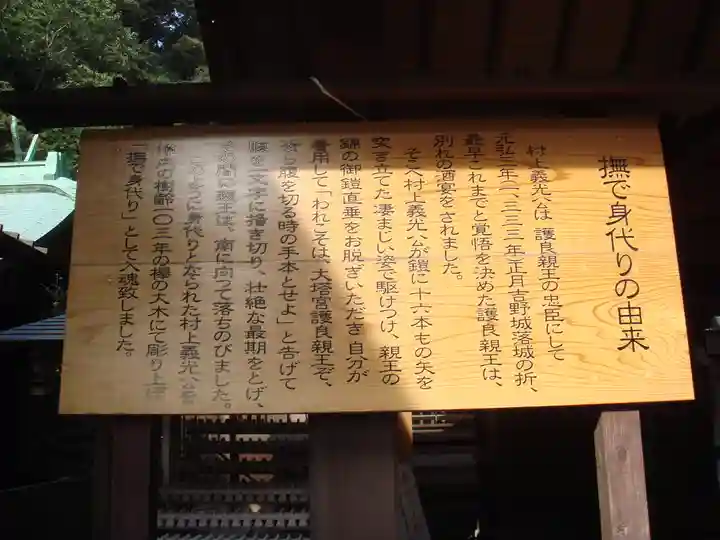 撫で身代りの由来
村上義光公は 護良親王の忠臣にして
元弘三年(一、三三三年)正月吉野城落城の折、
最早これまでと覚悟を決めた護良親王は、
別れの酒宴をされました。
そこへ村上義光公が鎧に十六本もの矢を
突き立てた凄まじい姿で駆けつけ、親王の
錦の御鎧直垂をお脱ぎいただき自分が
着用して「われこそは、大塔宮護良親王ぞ、
汝ら腹を切る時の手本とせよ」と告げて
腹を一文字に掻き切り、壮絶な最期をとげ、
その間に親王は、南に向って落ちのびました。
このように身代りとなられた村上義光公を
神戸の樹齢一〇三年の欅の大木にて彫り上げ
「撫で身代り」として入魂致しました。